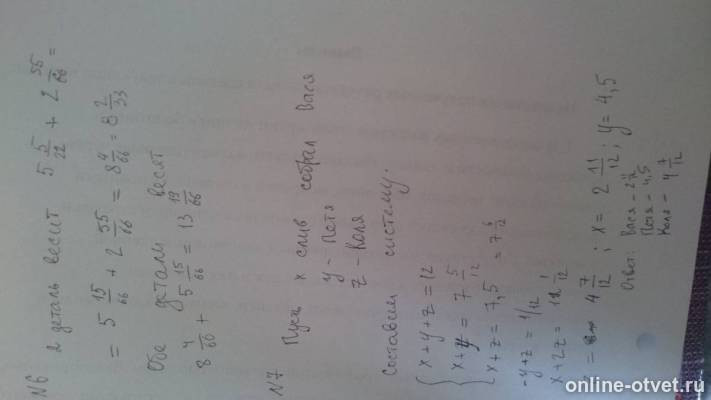 N6 2 деталь весит 5 5/22 + 2 55/66 =
= 5 15/66 + 2 55/66 = 8 4/66 = 8 2/33
Обе детали весят
8 4/60 + 5 15/66 = 13 19/66
N7 Пусть x слив собрал Вася
y - Петя
z - Коля
Составим систему.
x + y + z = 12
x + y = 7 5/12
x + z = 7,5 = 7 6/12
-y + z = 1/12
x + 2z = 12 1/12
z = 4 7/12 ; x = 2 11/12 ; y = 4,5
Ответ: Вася - 2 11/12
Петя - 4,5
Коля - 4 7/12
online-otvet.ru